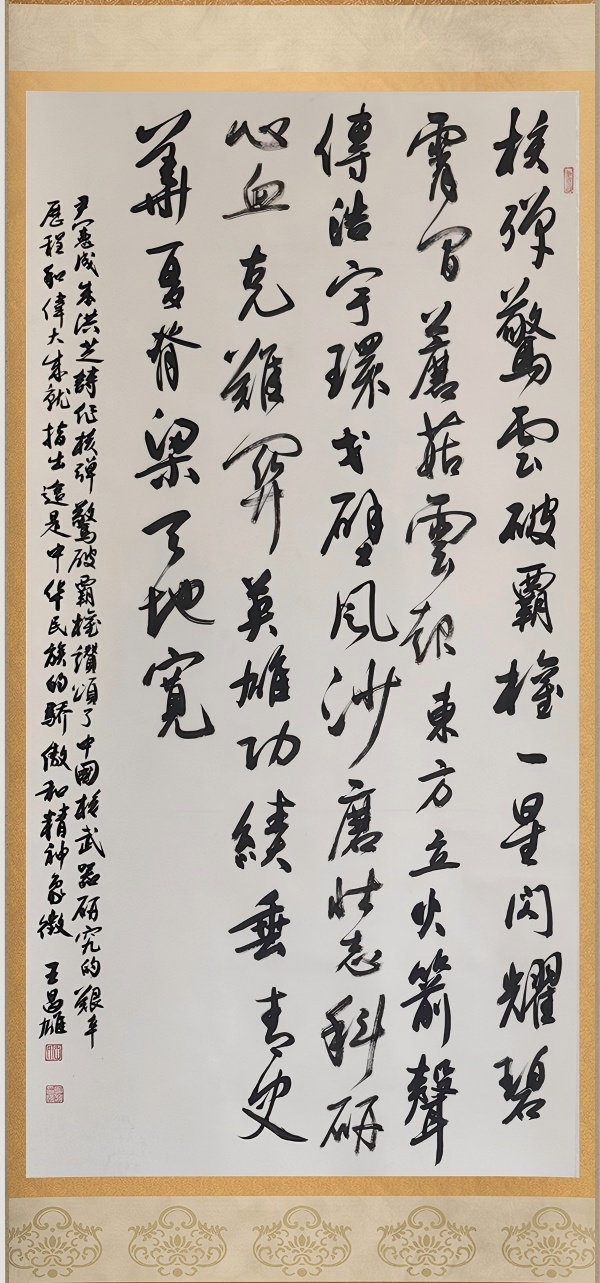 核弹驚雲破霸權一星闪耀碧
霄间蘑菇雲起東方立火箭聲
傳浩宇環戈壁风沙磨壮志科研
心血克難關英雄功績垂青史
華夏脊梁天地寬
尹憲成朱洪芝詩作核弹驚破霸權讚頌了中國核武器研究的艱辛
歷程和偉大成就指出這是中华民族的骄傲和精神象徵 王昌雄